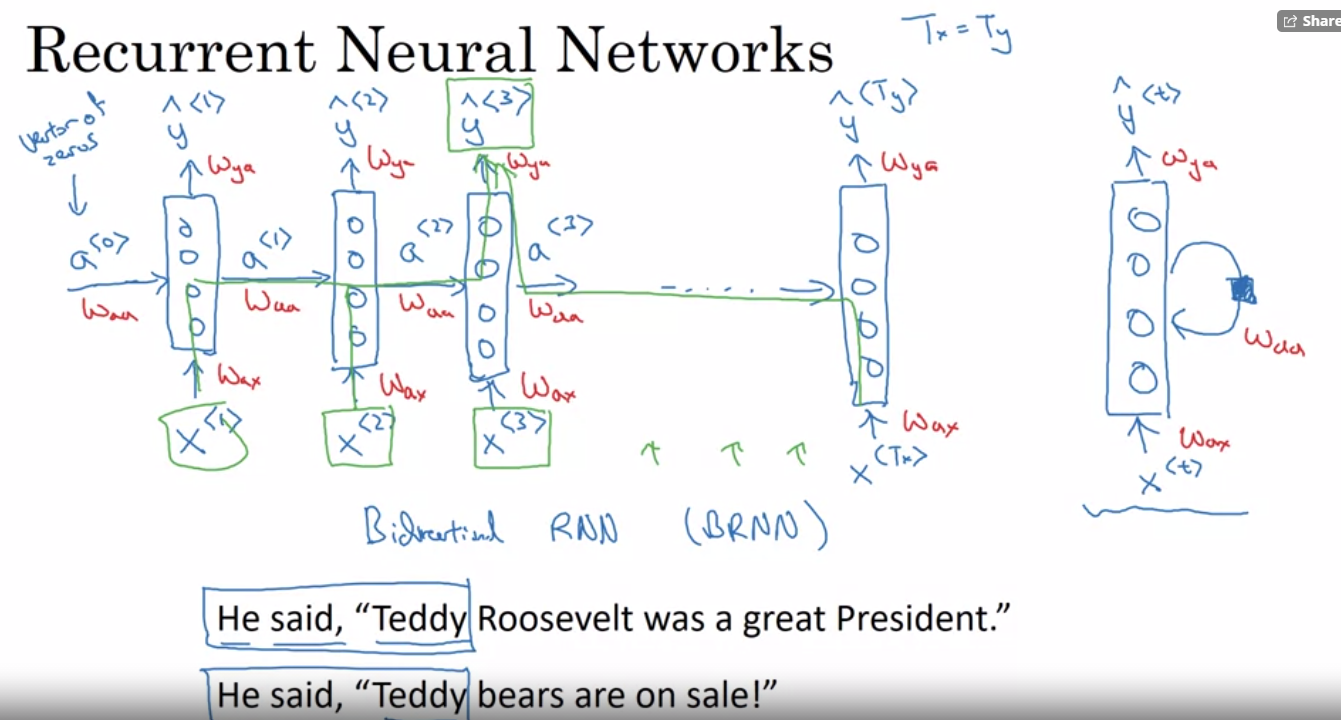 Recurrent Neural Networks
Tx = Ty
Share
vector of zeros
ŷ<1> ŷ<2> ŷ<3> ŷ<Ty> ŷ<t>
Wya Wya Wya Wya Wya
a<0> a<1> a<2> a<3>
Waa Waa Waa Waa ----- Waa
Wax Wax Wax Wax Wax
x<1> x<2> x<3> x<Tx> x<t>
Bidirectional RNN (BRNN)
He said, “Teddy Roosevelt was a great President.”
He said, “Teddy bears are on sale!”